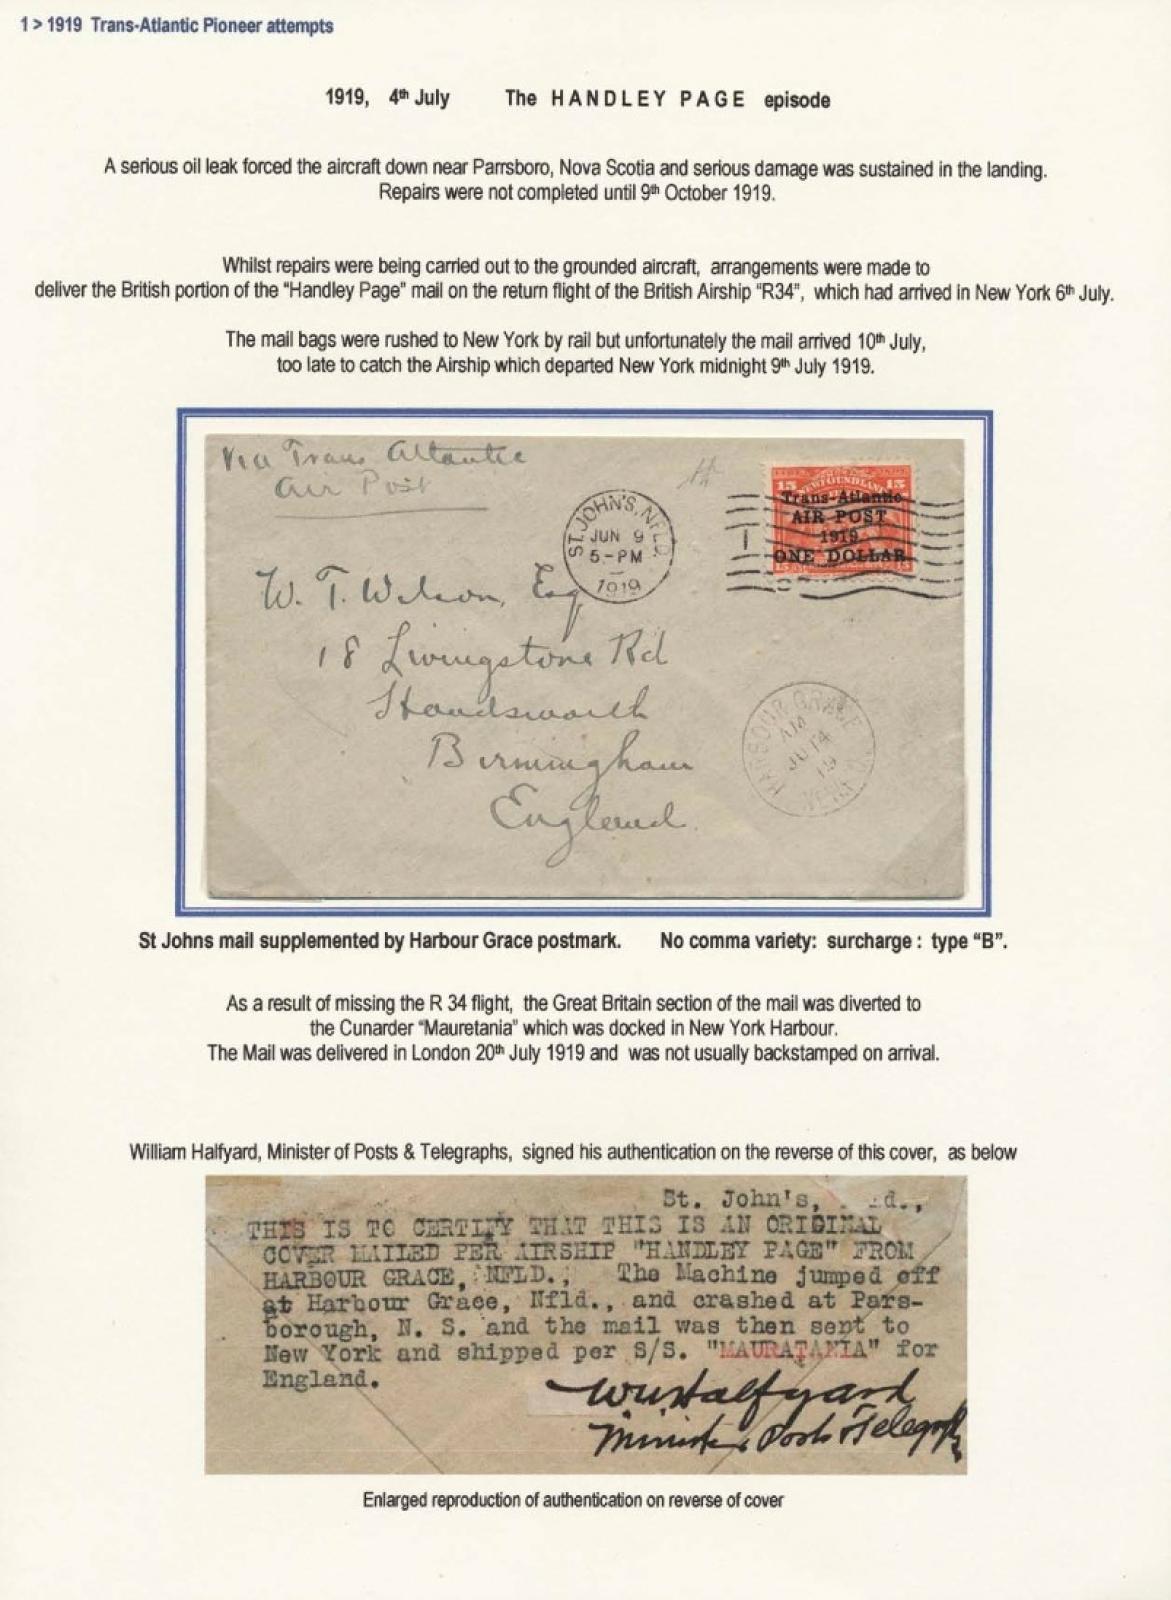 1 > 1919 Trans-Atlantic Pioneer attempts
1919, 4th July The HANDLEY PAGE episode
A serious oil leak forced the aircraft down near Parrsboro, Nova Scotia and serious damage was sustained in the landing.
Repairs were not completed until 9th October 1919.
Whilst repairs were being carried out to the grounded aircraft, arrangements were made to
deliver the British portion of the "Handley Page" mail on the return flight of the British Airship "R34", which had arrived in New York 6th July.
The mail bags were rushed to New York by rail but unfortunately the mail arrived 10th July,
too late to catch the Airship which departed New York midnight 9th July 1919.
Via Trans Atlantic
Air Post
ST. JOHN'S, NFLD.
JUN 9
5-PM
1919
15 NEWFOUNDLAND 15
Trans-Atlantic
AIR POST
1919
ONE DOLLAR.
15 15
W. T. Wilson, Esq
18 Livingstone Rd
Handsworth
Birmingham
England.
HARBOUR GRACE
AM
JU 14
19
NEWF'D
St Johns mail supplemented by Harbour Grace postmark. No comma variety: surcharge : type "B".
As a result of missing the R 34 flight, the Great Britain section of the mail was diverted to
the Cunarder "Mauretania" which was docked in New York Harbour.
The Mail was delivered in London 20th July 1919 and was not usually backstamped on arrival.
William Halfyard, Minister of Posts & Telegraphs, signed his authentication on the reverse of this cover, as below
St. John's, d.,
THIS IS TO CERTIFY THAT THIS IS AN ORIGINAL
COVER MAILED PER AIRSHIP "HANDLEY PAGE" FROM
HARBOUR GRACE, NFLD., The Machine jumped off
at Harbour Grace, Nfld., and crashed at Pars-
borough, N. S. and the mail was then sent to
New York and shipped per S/S. "MAURATANIA" for
England.
WWHalfyard
Minister Posts & Telegraphs
Enlarged reproduction of authentication on reverse of cover